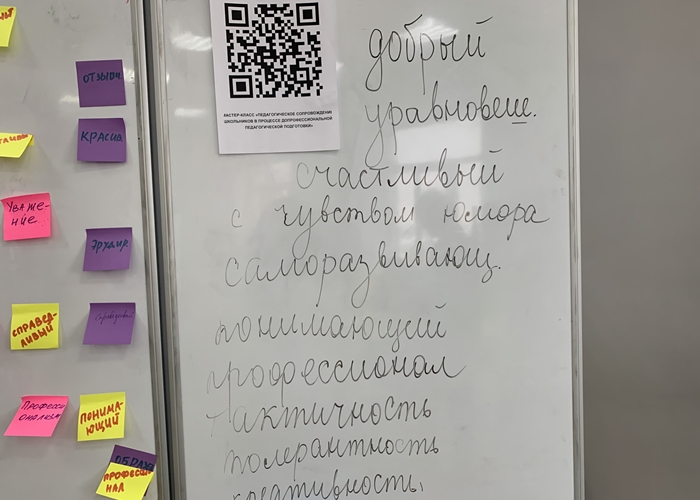 ОТЗЫВЧ
КРАСИВ
УВАЖЕ-
НИЕ
ЭРУДИР.
СПРАВЕД-
ЛИВЫЙ
ПРОФЕССИ
ОНАЛИЗМ
ПОНИМА-
ЮЩИЙ
ОБРАЗ
ПРОФЕССИО
НАЛ
МАСТЕР-КЛАСС «ПЕДАГОГИЧЕСКОЕ СОПРОВОЖДЕНИЕ
ШКОЛЬНИКОВ В ПРОЦЕССЕ ДОПРОФЕССИОНАЛЬНОЙ
ПЕДАГОГИЧЕСКОЙ ПОДГОТОВКИ»
добрый
уравновеш.
счастливый
с чувством юмора
саморазвивающ.
понимающий
профессионал
тактичность
толерантность
креативность.